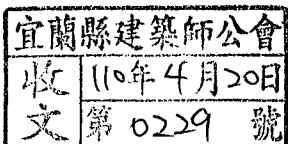 宜蘭縣建築師公會
收文
110年4月20日
第 0229 號